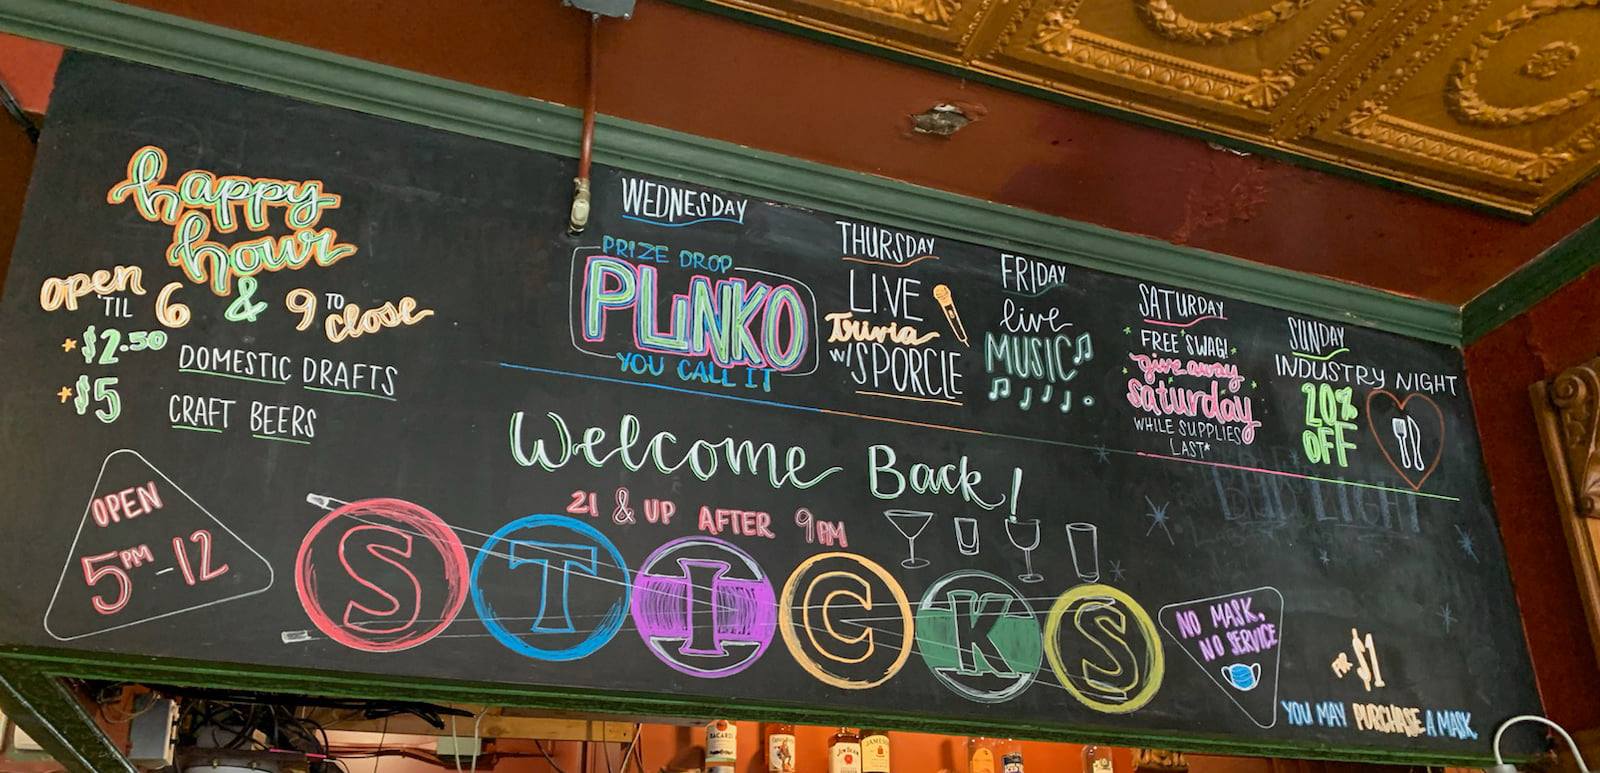 happy
hour
open 'TIL 6 & 9 TO close
*$2.50 DOMESTIC DRAFTS
*$5 CRAFT BEERS
WEDNESDAY
PRIZE DROP
PLINKO
YOU CALL IT
THURSDAY
LIVE
Trivia
W/ SPORCLE
FRIDAY
live
MUSIC
SATURDAY
FREE SWAG!
give away
saturday
WHILE SUPPLIES
LAST*
SUNDAY
INDUSTRY NIGHT
20%
OFF
Welcome Back!
21 & UP AFTER 9PM
BUD LIGHT
OPEN
5PM-12
STICKS
NO MASK,
NO SERVICE
FOR $1
YOU MAY PURCHASE A MASK
BACARDI
JIM BEAM
JAMESON